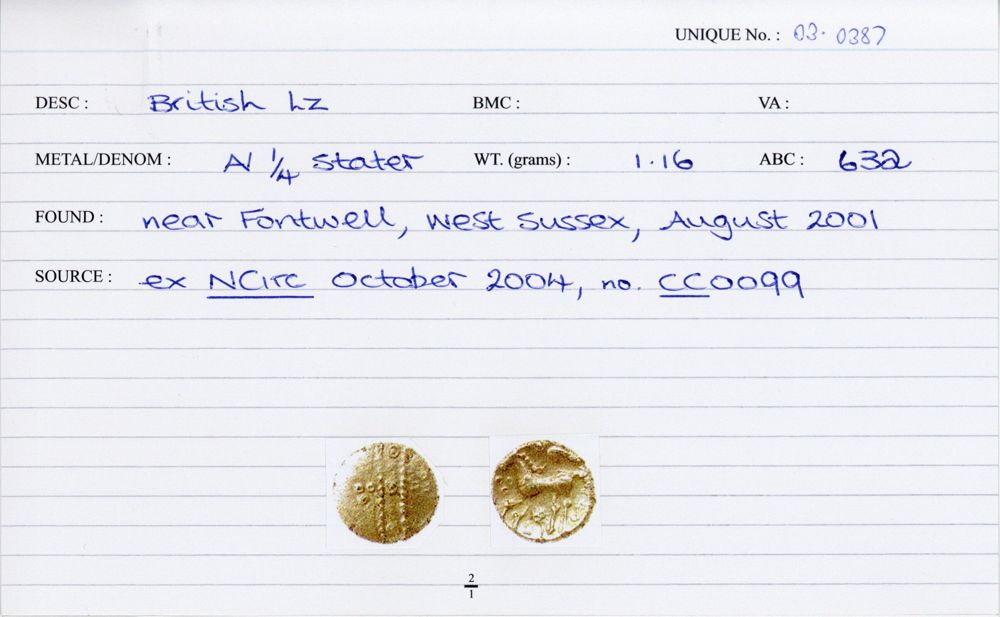 UNIQUE No. : 03. 0387
DESC : British LZ BMC : VA :
METAL/DENOM : AV 1/4 stater WT. (grams) : 1.16 ABC : 632
FOUND : near Fontwell, West Sussex, August 2001
SOURCE : ex NCirc October 2004, no. CC0099
2/1